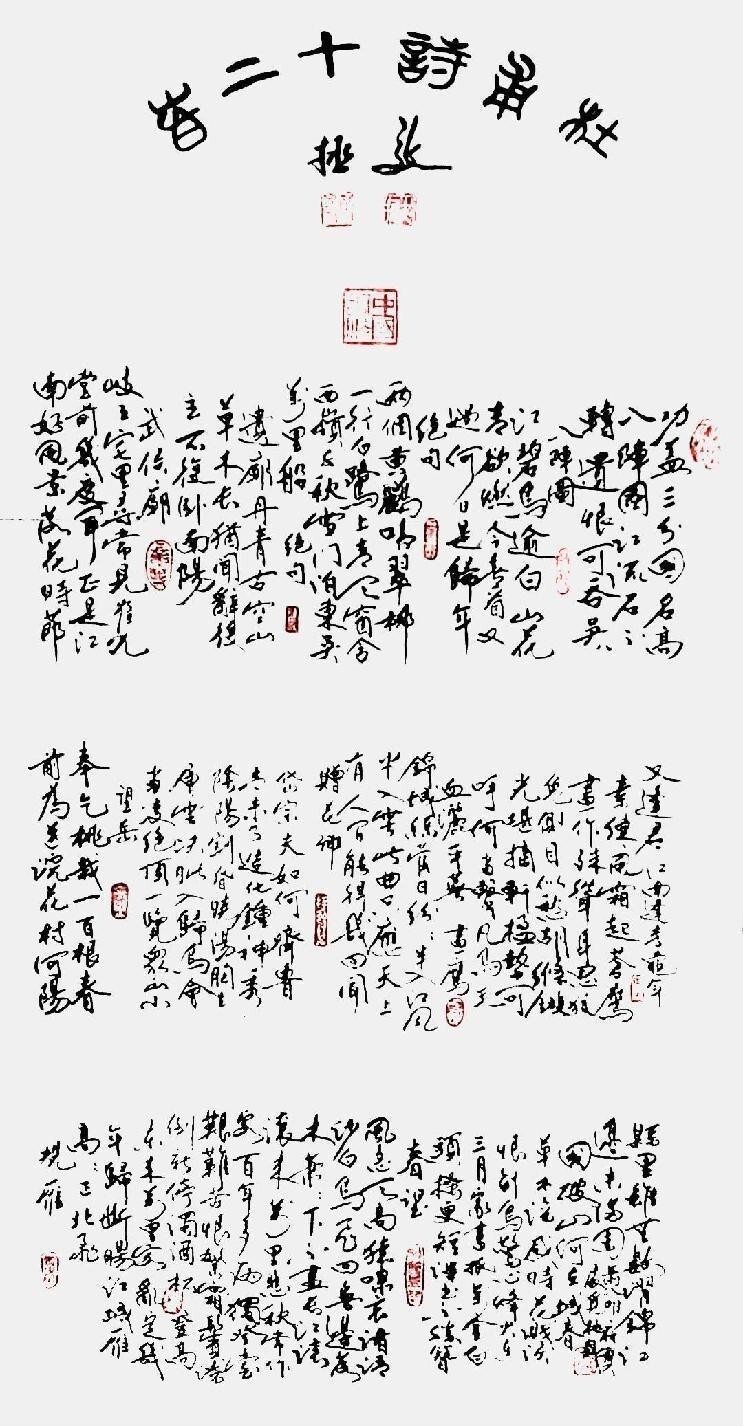 杜甫詩十二首
功盖三分國名高
八陣圖江流石不
轉遺恨可吞吴
八陣圖
江碧鳥逾白山花
青欲燃今春看又
過何日是歸年
絕句
两個黄鸝鳴翠柳
一行白鷺上青天窗含
西嶺千秋雪門泊東吴
萬里船 絕句
遺廟丹青古空山
草木長猶聞辭後
主不復卧南陽
武侯廟
岐王宅里尋常見崔九
堂前幾度聞正是江
南好風景落花時節
又逢君 江南逢李龜年
素練風霜起蒼鷹
畫作殊聳身思狡
兔側目似愁胡絛鏇
光堪摘軒楹勢可
呼何當擊凡鳥毛
血灑平蕪 畫鷹
錦城絲管日紛紛半入江風
半入雲此曲只應天上
有人間能得幾回聞
贈花卿
岱宗夫如何齊魯
青未了造化鍾神秀
陰陽割昏曉蕩胸生
層雲決眥入歸鳥會
當凌絕頂一覽衆山小
望岳
奉乞桃栽一百根春
前為送浣花村河陽
縣里雖無數濯錦江
邊未滿園
國破山河在城春
草木深感時花濺淚
恨别鳥驚心烽火連
三月家書抵萬金白
頭搔更短渾欲不勝簪
春望
風急天高猿嘯哀渚清
沙白鳥飛回無邊落
木蕭蕭下不盡長江滚
滚来萬里悲秋常作
客百年多病獨登台
艱難苦恨繁霜鬢潦
倒新停濁酒杯 登高
東来萬里客亂定幾
年歸斷腸江城雁
高高正北飛
雁